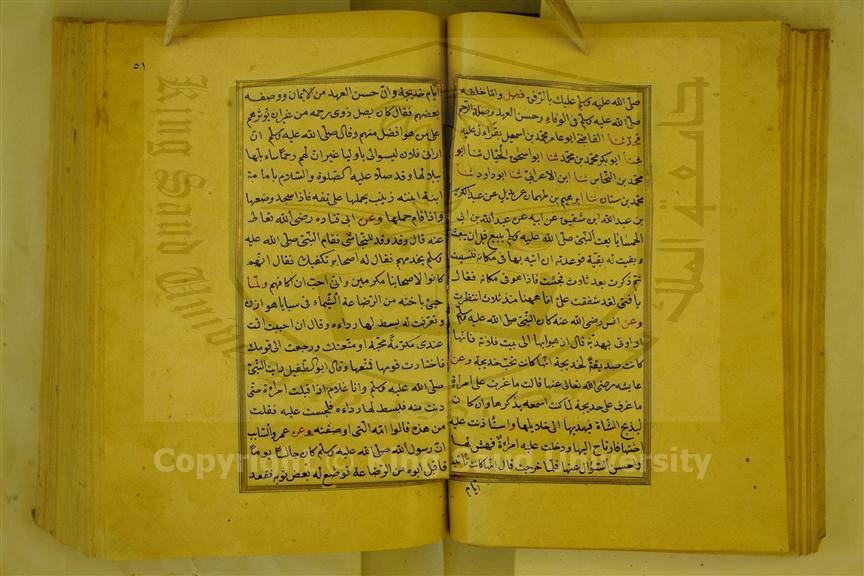 صلى الله عليه وسلم عليك بالرفق فصل واما خلقه
صلى الله عليه وسلم في الوفاء وحسن العهد وصلة الرحم
فحدثنا القاضي ابو عامر محمد بن اسمعيل بقراءتي عليه
ثنا ابو بكر محمد بن محمد ثنا ابو اسحق الحبال ثنا ابو
محمد بن النحاس ثنا ابن الاعرابي ثنا ابو داود ثنا
محمد بن سنان ثنا ابرهيم بن طهمان عن بديل عن عبد الكريم
بن عبد الله ابن شقيق عن ابيه عن عبد الله بن ابي
الحمسا بايعت النبي صلى الله عليه وسلم ببيع قبل ان يبعث
وبقيت له بقية فوعدته ان اتيه بها في مكانه فنسيت
ثم ذكرت بعد ثلاث فجئت فاذا هو في مكانه فقال
يا فتى لقد شققت علي انا ههنا منذ ثلاث انتظرك
وعن انس رضي الله عنه كان النبي صلى الله عليه وسلم
اذا اتى بهدية قال اذهبوا بها الى بيت فلانة فانها
كانت صديقة لخديجة انها كانت تحب خديجة وعن
عايشة رضي الله تعالى عنها قالت ما غرت على امراة
ما غرت على خديجة لما كنت اسمعه يذكرها وان كان
ليذبح الشاة فيهديها الى خلايلها واستاذنت عليه
اختها فارتاح اليها ودخلت عليه امراة فهش لها
واحسن السؤال عنها فلما خرجت قال انها كانت تاتينا
ايام
٥١
ايام خديجة وان حسن العهد من الايمان ووصفه
بعضهم فقال كان يصل ذوي رحمه من غير ان يوثرهم
على من هو افضل منهم وقال صلى الله عليه وسلم ان
ال ابي فلان ليسوا لي باوليا غير ان لهم رحما سابلها
ببلالها وقد صلا عليه الصلوة والسلام بامامة
ابنة ابنته زينب يحملها على عاتقه فاذا سجد وضعها
واذا قام حملها وعن ابي قتادة رضي الله تعالى
عنه قال وفد وفد للنجاشي فقام النبي صلى الله عليه
وسلم يخدمهم فقال له اصحابه نكفيك فقال انهم
كانوا لاصحابنا مكرمين واني احب ان اكافيهم ولما
جئ باخته من الرضاعة الشيماء في سبايا هوازن
وتعرفت له بسط لها رداءه وقال ان احببت اقمت
عندي مكرمة محبة او متعتك ورجعت الى قومك
فاختارت قومها فمتعها وقال ابو الطفيل رايت النبي
صلى الله عليه وسلم وانا غلام اذ اقبلت امراة حتى
دنت منه فبسط لها رداءه فجلست عليه فقلت
من هذه قالوا امه التي ارضعته وعن عمرو بن السايب
ان رسول الله صلى الله عليه وسلم كان جالسا يوما
فاقبل ابوه من الرضاعة فوضع له بعض ثوبه فقعد
جامعة الملك
King Saud University
Copyright © King Saud University